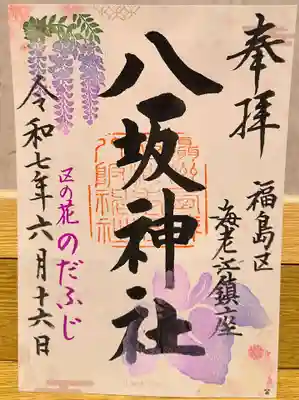 奉拝
福島区
海老江鎮座
八坂神社
区の花 のだふじ
令和七年六月十六日